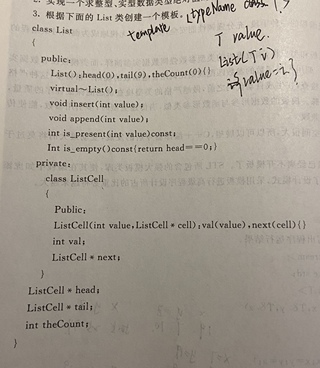 2. 实现一个求整型、实型数据类型绝对
3. 根据下面的 List 类创建一个模板。
template [typeName class T]
class List
{
T value.
public:
List(T v)
List():head(0),tail(9),theCount(0){}
virtual~List();
value=v.}
void insert(int value);
void append(int value);
int is_present(int value)const;
Int is_empty()const{return head==0;}
private:
class ListCell
{
Public:
ListCell(int value,ListCell * cell);val(value),next(cell){}
int val;
ListCell * next;
}
ListCell * head;
ListCell * tail;
int theCount;
}